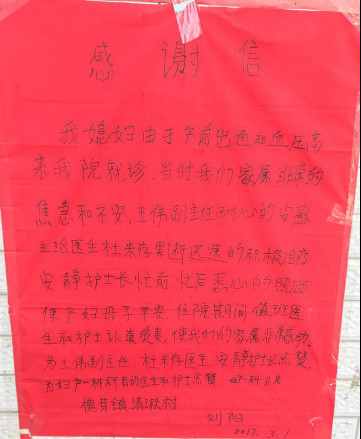 感谢信
我媳妇由于产前出血和血压高
来我院就诊.当时我们家属非常的
焦急和不安,王伟副主任耐心的安慰
主治医生杜来存果断迅速的积极治疗
安静护士长忙前忙后悉心的照顾
使产妇母子平安 住院期间值班医
生和护士认真负责,使我们的家属非常感动.
为王伟副主任、杜来存医生 安静护士长点赞,
为妇产一科所有的医生和护士点赞
槐芽镇清湫村
刘阳
2017.3.1